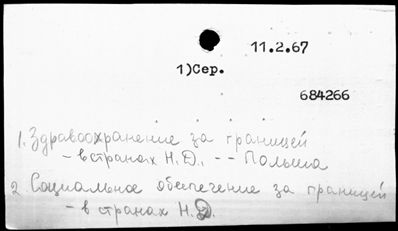 11.2.67
1)Сер.
684266
1. Здравоохранение за границей
- в странах Н.Д., -- Польша
2. Социальное обеспечение за границей
- в странах Н.Д.